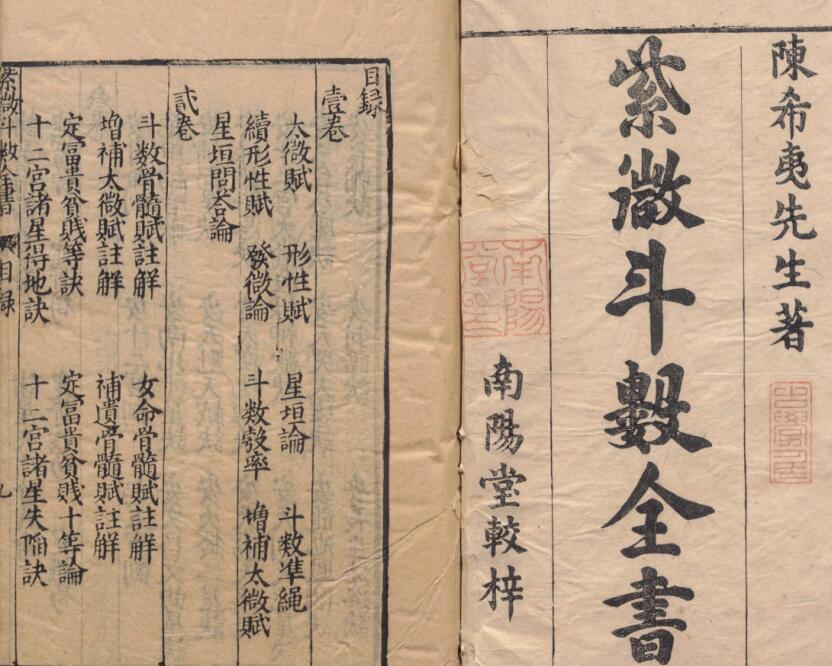 陳希夷先生著
紫微斗數全書
南陽堂較梓
南陽
目録
壹卷
太微賦 形性賦 星垣論 斗数凖繩
續形性賦 發微論 斗数彀率 増補太微賦
星垣問荅論
貳卷
斗数骨髓賦註解 女命骨髓賦註解
増補太微賦註解 補遺骨髓賦註解
定富貴貧贱等訣 定富貴貧贱十等論
十二宫諸星得地訣 十二宫諸星失陷訣
紫微斗数全書 目録